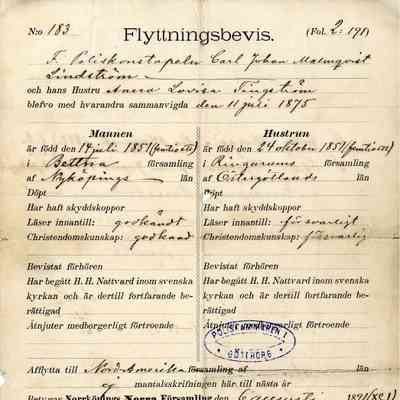 N:o 183 Flyttningsbevis. (Fol. 2: 191)
F. Poliskonstapeln Carl Johan Malmqvist
Lindström
och hans Hustru Anna Lovisa Tingström
blefvo med hvarandra sammanvigda den 11 juli 1875
Mannen
är född den 14 juli 1851 (femtioett)
i Bettna församling
af Nyköpings län
Döpt
Har haft skyddskoppor
Läser innantill: godkändt
Christendomskunskap: godkänd
Bevistat förhören
Har begått H. H. Nattvard inom svenska
kyrkan och är dertill fortfarande be-
rättigad
Åtnjuter medborgerligt förtroende
Hustrun
är född den 24 oktober 1851 (femtioett)
i Ringarums församling
af Östergötlands län
Döpt
Har haft skyddskoppor
Läser innantill: försvarligt
Christendomskunskap: försvarlig
Bevistat förhören
Har begått H. H. Nattvard inom svenska
kyrkan och är dertill fortfarande be-
rättigad
Åtnjuter medborgerligt förtroende
POLISKAMMAREN I
GÖTEBORG
Afflytta till Nord Amerika församling
ej mantalsskrifningen här till nästa år
Betygar Norrköpings Norra Församling den 6 augusti 1891